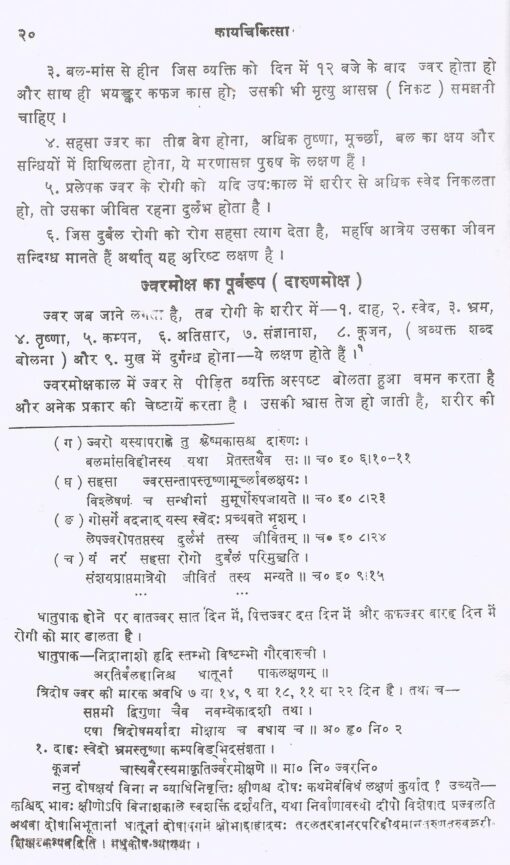 २०
कायचिकित्सा
३. बल-मांस से हीन जिस व्यक्ति को दिन में १२ बजे के बाद ज्वर होता हो
और साथ ही भयङ्कर कफज कास हो; उसकी भी मृत्यु आसन्न ( निकट ) समझनी
चाहिए ।
४. सहसा ज्वर का तीव्र वेग होना, अधिक तृष्णा, मूर्च्छा, बल का क्षय और
सन्धियों में शिथिलता होना, ये मरणासन्न पुरुष के लक्षण हैं ।
५. प्रलेपक ज्वर के रोगी को यदि उषःकाल में शरीर से अधिक स्वेद निकलता
हो, तो उसका जीवित रहना दुर्लभ होता है ।
६. जिस दुर्बल रोगी को रोग सहसा त्याग देता है, महर्षि आत्रेय उसका जीवन
सन्दिग्ध मानते हैं अर्थात् यह अरिष्ट लक्षण है ।
ज्वरमोक्ष का पूर्वरूप ( दारुणमोक्ष )
ज्वर जब जाने लगता है, तब रोगी के शरीर में—१. दाह, २. स्वेद, ३. भ्रम,
४. तृष्णा, ५. कम्पन, ६. अतिसार, ७. संज्ञानाश, ८. कूजन, ( अव्यक्त शब्द
बोलना ) और ९. मुख में दुर्गन्ध होना—ये लक्षण होते हैं ।१
ज्वरमोक्षकाल में ज्वर से पीड़ित व्यक्ति अस्पष्ट बोलता हुआ वमन करता है
और अनेक प्रकार की चेष्टायें करता है । उसकी श्वास तेज हो जाती है, शरीर की
( ग ) ज्वरो यस्यापराह्णे तु श्लेष्मकासश्च दारुणः ।
बलमांसविहीनस्य यथा प्रेतस्तथैव सः ॥ च० इ० ६।१०-११
( घ ) सहसा ज्वरसन्तापस्तृष्णामूर्च्छाबलक्षयः ।
विश्लेषणं च सन्धीनां मुमूर्षोरुपजायते ॥ च० इ० ८।२३
( ङ ) गोसर्गे वदनाद् यस्य स्वेदः प्रच्यवते भृशम् ।
लेपज्वरोपतप्तस्य दुर्लभं तस्य जीवितम् ॥ च० इ० ८।२४
( च ) यं नरं सहसा रोगो दुर्बलं परिमुञ्चति ।
संशयप्राप्तमात्रेयो जीवितं तस्य मन्यते ॥ च० इ० ९।१५
... ...
धातुपाक होने पर वातज्वर सात दिन में, पित्तज्वर दस दिन में और कफज्वर बारह दिन में
रोगी को मार डालता है ।
धातुपाक—निद्रानाशो हृदि स्तम्भो विष्टम्भो गौरवारुची ।
अरतिर्बलहानिश्च धातूनां पाकलक्षणम् ॥
त्रिदोष ज्वर की मारक अवधि ७ या १४, ९ या १८, ११ या २२ दिन है । तथा च—
सप्तमी द्विगुणा चैव नवम्येकादशी तथा ।
एषा त्रिदोषमर्यादा मोक्षाय च वधाय च ॥ अ० हृ० नि० २
१. दाहः स्वेदो भ्रमस्तृष्णा कम्पविड्भिदसंज्ञता ।
कूजनं चास्यवैरस्यमाकृतिर्ज्वरमोक्षणे ॥ मा० नि० ज्वरनि०
ननु दोषक्षयं विना न व्याधिनिवृत्तिः क्षीणश्च दोषः कथमेवंविधं लक्षणं कुर्यात् ? उच्यते—
कश्चिद् भावः क्षीणोऽपि विनाशकाले स्वशक्तिं दर्शयति, यथा निर्वाणावस्थो दीपो विशेषात् प्रज्वलति
अथवा दोषाभिभूतानां धातूनां दोषापगमे क्षोभाद्दाहादयः
मधुकोष-व्याख्या ।